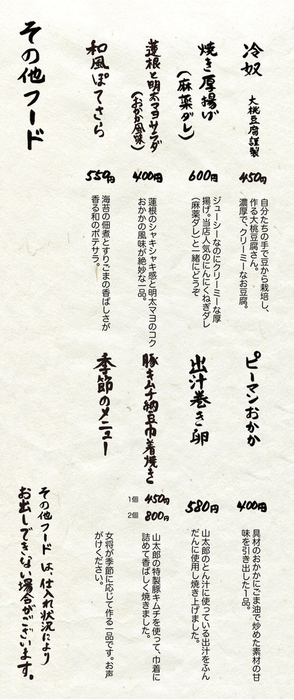 その他フード
冷奴 大桃豆腐謹製
450円
自分たちの手で豆から栽培し、
作る大桃豆腐さん。
濃厚で、クリーミーなお豆腐。
焼き厚揚げ
(麻薬ダレ)
600円
ジューシーなのにクリーミーな厚
揚げ。当店人気のにんにくねぎダレ
(麻薬ダレ)と一緒にどうぞ
蓮根と明太マヨサラダ
(おかか風味)
400円
蓮根のシャキシャキ感と明太マヨのコク
おかかの風味が絶妙な一品。
和風ぽてさら
550円
海苔の佃煮とすりごまの香ばしさが
香る和のポテサラ。
ピーマンおかか
400円
具材のおかかにごま油で炒めた素材の甘
味を引き出した1品。
出汁巻き卵
580円
山太郎のとん汁に使っている出汁をふん
だんに使用し焼き上げました。
豚キムチ納豆巾着焼き
1個 450円
2個 800円
山太郎の特製豚キムチを使って、巾着に
詰めて香ばしく焼きました。
季節のメニュー
女将が季節に応じて作る一品です。お声
がけください。
その他フードは、仕入れ状況により
お出しできない場合がございます。